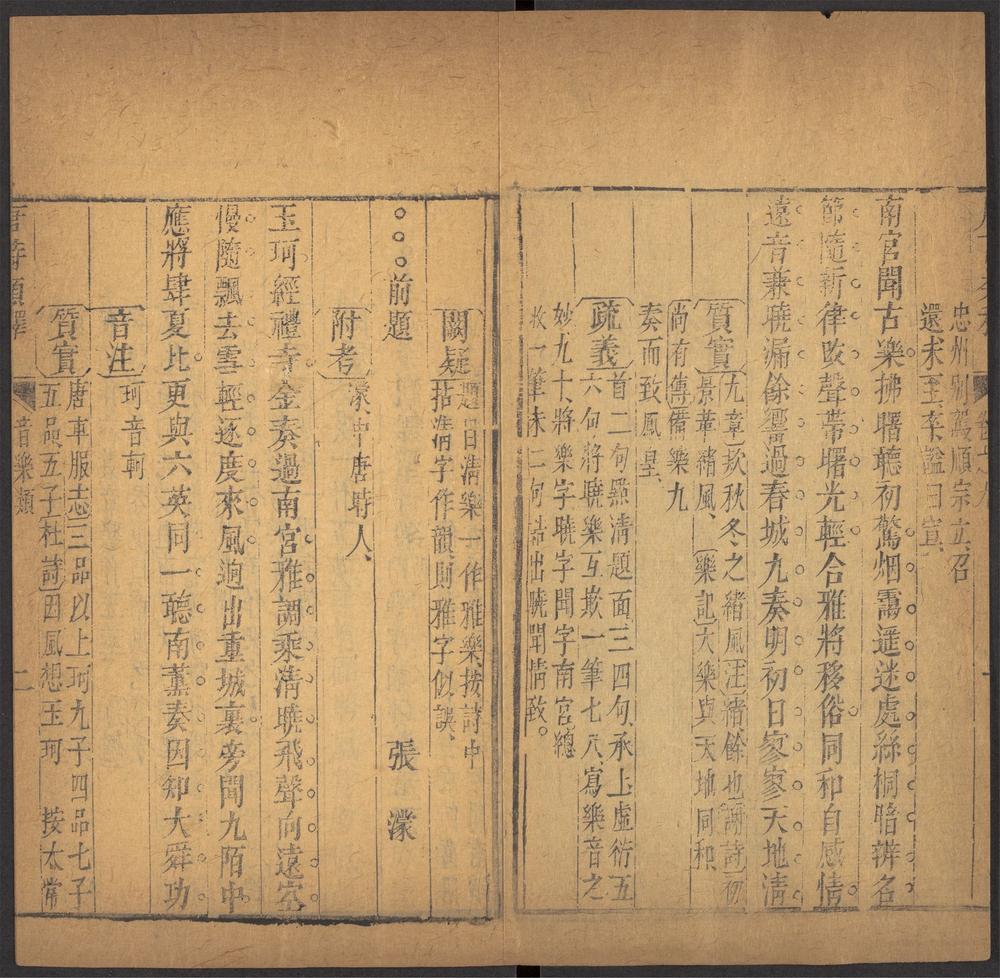 忠州別駕順宗立召
還未至卒諡曰宣
南宮聞古樂拂曙聽初驚烟靄遥迷處絲桐暗辨名
節隨新律改聲帶曙光輕合雅將移俗同和自感情
遠音兼曉漏餘響過春城九奏明初日寥寥天地清
質實
九章欵秋冬之緒風注緒餘也謝詩初
景革緒風、樂記大樂與天地同和
尚有傳備樂九
奏而致鳳皇、
疏義
首二句點清題面三四句承上虛衍五
六句將曉樂互欵一筆七八寫樂音之
妙九十將樂字曉字聞字南宮總
收一筆末二句拈出曉聞情致。
闕疑
題曰清樂一作雅樂按詩中
拈清字作韻則雅字似誤、
前題
張濛
附考
濛、中唐時人、
玉珂經禮寺金奏過南宮雅調乘清曉飛聲向遠空
慢隨飄去雪輕逐度來風迥出重城裏旁聞九陌中
應將肆夏比更與六英同一聽南薰奏因知大舜功
音注
珂音軻
質實
唐車服志三品以上珂九子四品七子
五品五子杜詩因風想玉珂 按太常
唐詩類釋
音樂類
二